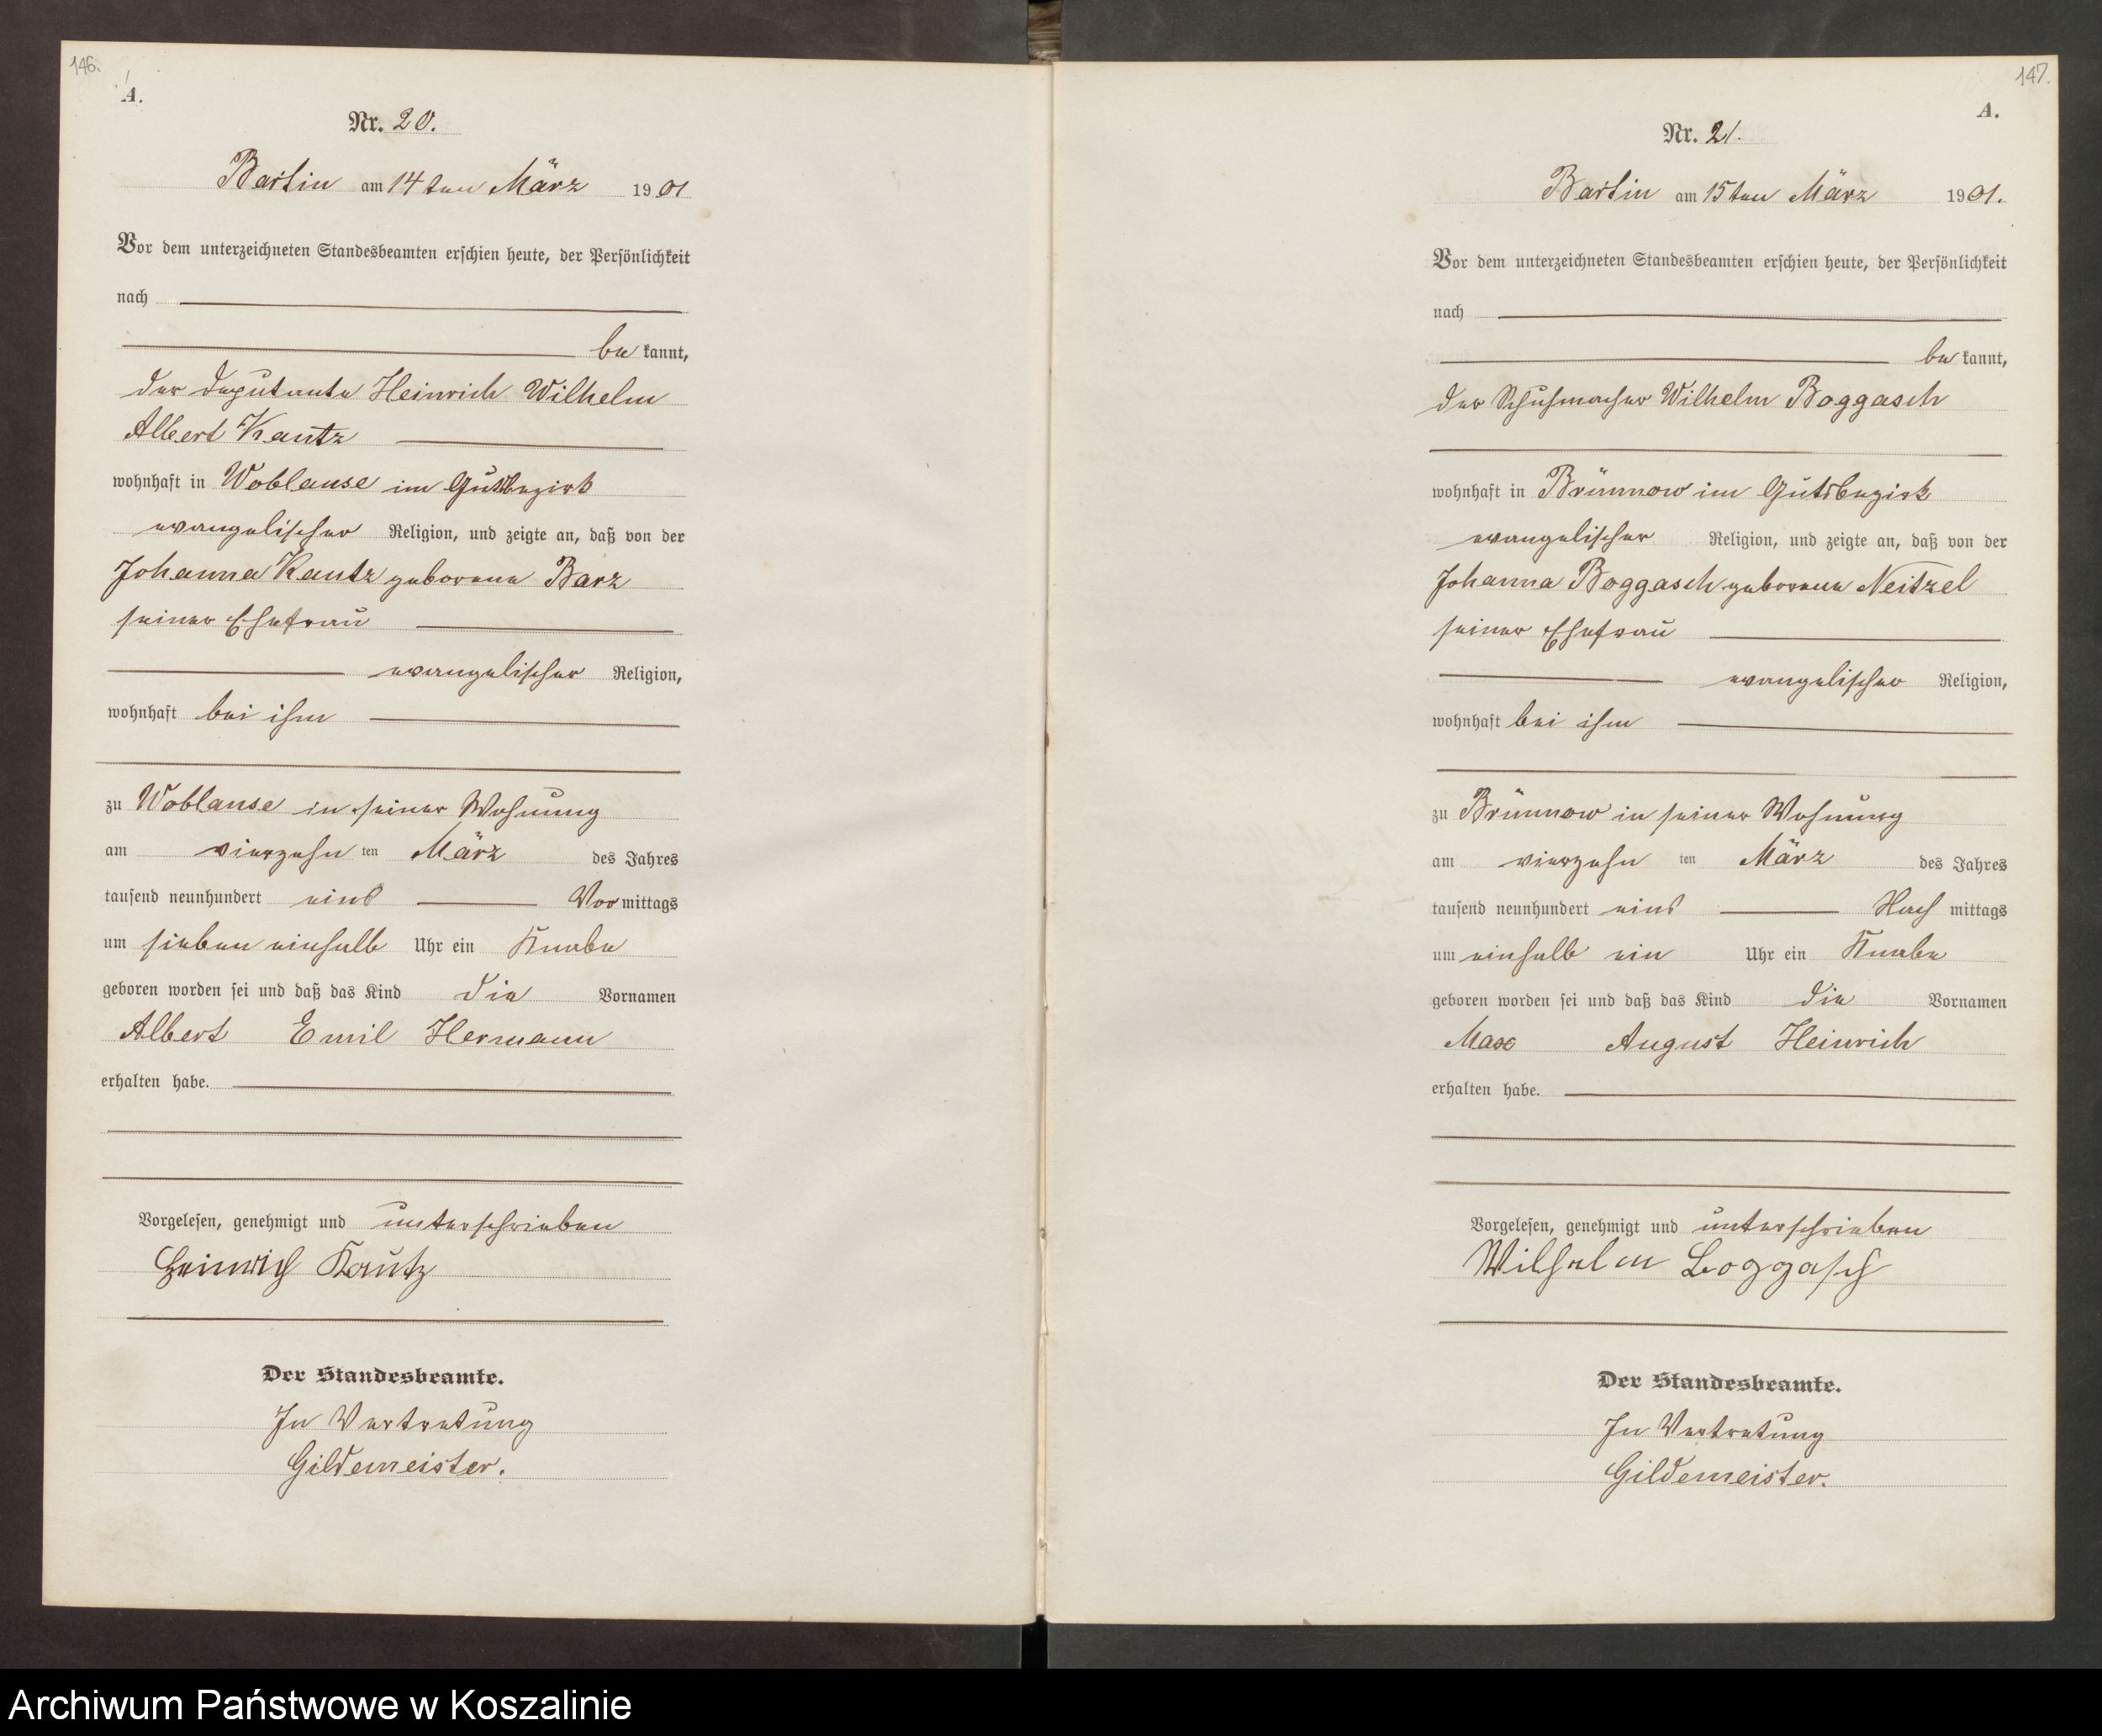 146.
A.
Nr. 20.
Bartin am 14ten März 1901
Vor dem unterzeichneten Standesbeamten erschien heute, der Persönlichkeit
nach
be kannt,
der Deputante Heinrich Wilhelm
Albert Kautz
wohnhaft in Woblanse im Gutsbezirk
evangelischer Religion, und zeigte an, daß von der
Johanna Kautz geborene Barz
seiner Ehefrau
evangelischer Religion,
wohnhaft bei ihm
zu Woblanse in seiner Wohnung
am vierzehn ten März des Jahres
tausend neunhundert eins Vor mittags
um sieben einhalb Uhr ein Knabe
geboren worden sei und daß das Kind die Vornamen
Albert Emil Hermann
erhalten habe.
Vorgelesen, genehmigt und unterschrieben
Heinrich Kautz
Der Standesbeamte.
In Vertretung
Gildemeister.
147.
A.
Nr. 21.
Bartin am 15ten März 1901.
Vor dem unterzeichneten Standesbeamten erschien heute, der Persönlichkeit
nach
be kannt,
der Schuhmacher Wilhelm Boggasch
wohnhaft in Brünnow im Gutsbezirk
evangelischer Religion, und zeigte an, daß von der
Johanna Boggasch geborene Neitzel
seiner Ehefrau
evangelischer Religion,
wohnhaft bei ihm
zu Brünnow in seiner Wohnung
am vierzehn ten März des Jahres
tausend neunhundert eins Nach mittags
um einhalb ein Uhr ein Knabe
geboren worden sei und daß das Kind die Vornamen
Max August Heinrich
erhalten habe.
Vorgelesen, genehmigt und unterschrieben
Wilhelm Boggasch
Der Standesbeamte.
In Vertretung
Gildemeister.
Archiwum Państwowe w Koszalinie